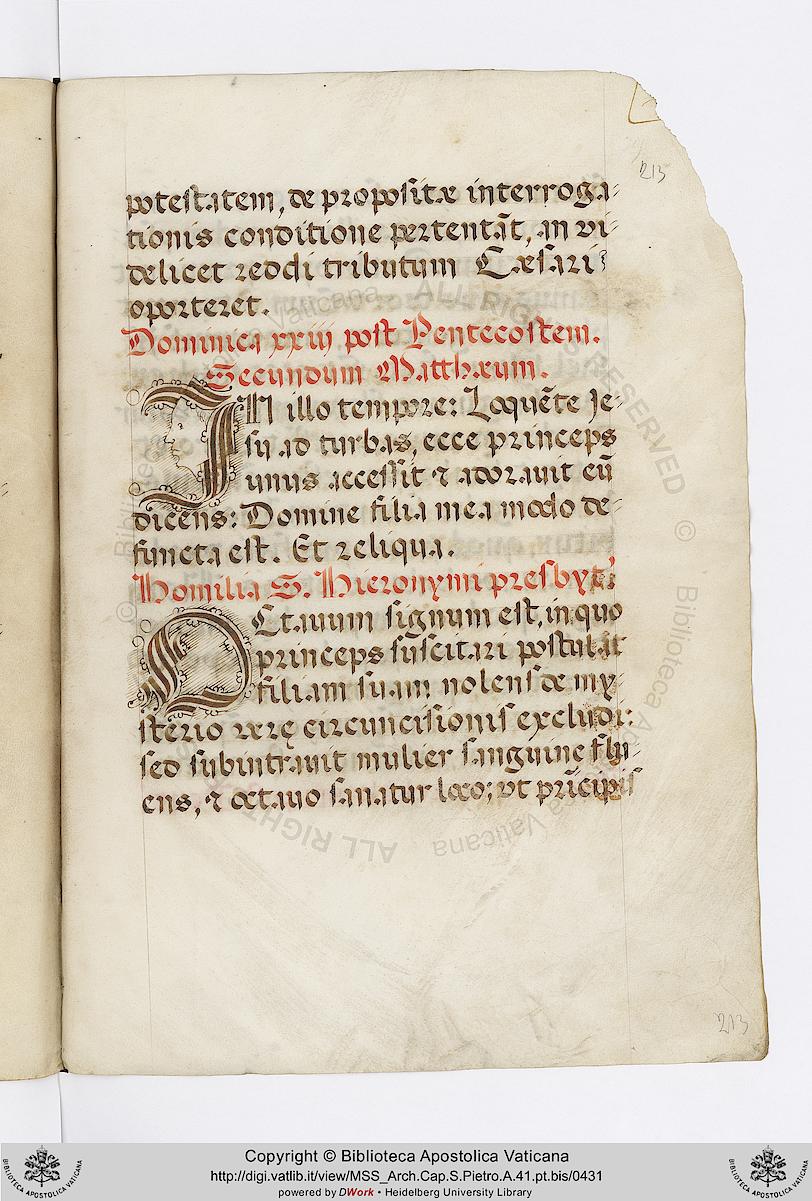 213
potestatem, de propositæ interroga-
tionis conditione pertentāt, an vi-
delicet reddi tributum Cæsari
oporteret.
Dominica xxiij post Pentecostem.
Secundum Matthæum.
IN illo tempore: Loquēte Je-
su ad turbas, ecce princeps
unus accessit ⁊ adoravit eū
dicens: Domine filia mea modo de-
functa est. Et reliqua.
Homilia S. Hieronymi presbyt.
OCtavum signum est, in quo
princeps suscitari postulat
filiam suam nolens de my-
sterio veræ circuncisionis excludi:
sed subintravit mulier sanguine flu-
ens, ⁊ octavo sanatur loco; vt prīcipis
213
Copyright © Biblioteca Apostolica Vaticana
http://digi.vatlib.it/view/MSS_Arch.Cap.S.Pietro.A.41.pt.bis/0431
powered by DWork • Heidelberg University Library
BIBLIOTECA APOSTOLICA VATICANA
BIBLIOTECA APOSTOLICA VATICANA